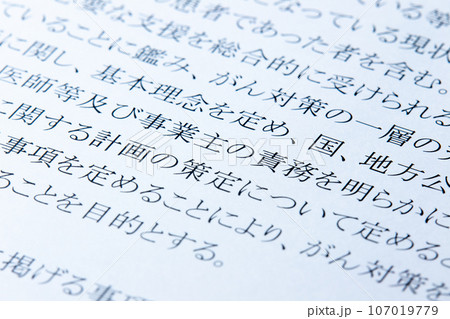 患者であった者を含む。
必要な支援を総合的に受けられる
ていることに鑑み、がん対策の一層の
に関し、基本理念を定め、国、地方公
医師等及び事業主の責務を明らかに
に関する計画の策定について定める
事項を定めることにより、がん対策を
ることを目的とする。
掲げる事
pixta.jp - 107019779